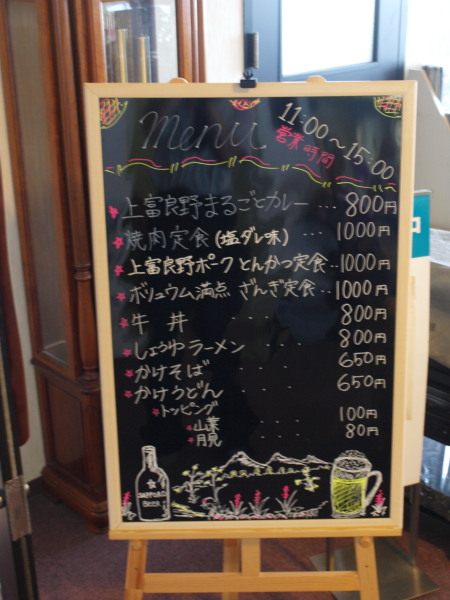 Menu
11:00～15:00
営業時間
上富良野まるごとカレー ... 800円
焼肉定食(塩ダレ味) ... 1000円
上富良野ポークとんかつ定食..1000円
ボリュウム満点 ざんぎ定食..1000円
牛丼 .... 800円
しょうゆラーメン ... 800円
かけそば .... 650円
かけうどん ... 650円
トッピング
山菜 ... 100円
月見 ... 80円
SAPPORO
BEER